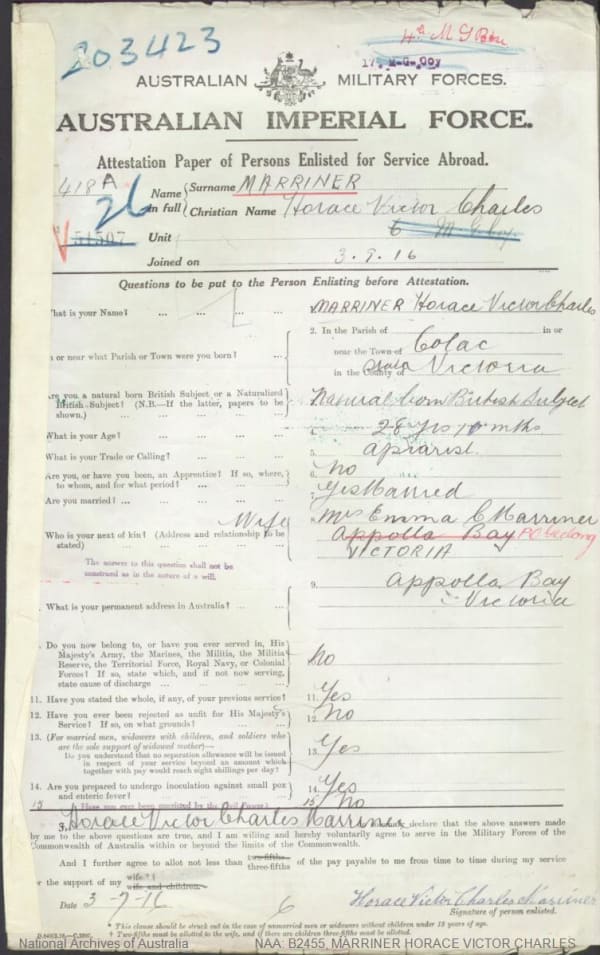 203423
4th M G Bn
17. M-G. Coy
AUSTRALIAN MILITARY FORCES.
AUSTRALIAN IMPERIAL FORCE.
Attestation Paper of Persons Enlisted for Service Abroad.
418A
26
Name in full
Surname MARRINER
Christian Name Horace Victor Charles
V 51507
Unit 6 M. G. Coy.
Joined on 3.7.16
Questions to be put to the Person Enlisting before Attestation.
hat is your Name? ... ... ... MARRINER Horace Victor Charles
n or near what Parish or Town were you born? ...
2. In the Parish of in or
near the Town of Colac
in the County of State Victoria
Are you a natural born British Subject or a Naturalized
British Subject? (N.B.—If the latter, papers to be
shown.) ... ... ...
Natural born British Subject
What is your Age? ... ... ... 4. 28 yrs 10 mths
What is your Trade or Calling? ... ... 5. apiarist.
Are you, or have you been, an Apprentice? If so, where,
to whom, and for what period? ... ...
6. No
Are you married? ... ... ... 7. Yes Married
Wife
Who is your next of kin? (Address and relationship to be
stated) ... ...
8. Mrs Emma C Marriner
Appolla Bay PO Geelong
VICTORIA
The answer to this question shall not be
construed as in the nature of a will.
What is your permanent address in Australia? ...
9. Appolla Bay
Victoria
Do you now belong to, or have you ever served in, His
Majesty's Army, the Marines, the Militia, the Militia
Reserve, the Territorial Force, Royal Navy, or Colonial
Forces? If so, state which, and if not now serving,
state cause of discharge ... ... ...
No
11. Have you stated the whole, if any, of your previous service? 11. Yes
12. Have you ever been rejected as unfit for His Majesty's
Service? If so, on what grounds? ...
12. No
13. (For married men, widowers with children, and soldiers who
are the sole support of widowed mother)—
Do you understand that no separation allowance will be issued
in respect of your service beyond an amount which
together with pay would reach eight shillings per day?
13. Yes
14. Are you prepared to undergo inoculation against small pox
and enteric fever? ... ...
14. Yes
15 Have you ever been convicted by the Civil Power? 15. No
I, Horace Victor Charles Marriner declare that the above answers made
by me to the above questions are true, and I am willing and hereby voluntarily agree to serve in the Military Forces of the
Commonwealth of Australia within or beyond the limits of the Commonwealth.
And I further agree to allot not less than two-fifths three-fifths of the pay payable to me from time to time during my service
or the support of my wife *†
wife and children.
Date 3-7-16
6
Horace Victor Charles Marriner
Signature of person enlisted.
* This clause should be struck out in the case of unmarried men or widowers without children under 18 years of age.
† Two-fifths must be allotted to the wife, and if there are children three-fifths must be allotted.
National Archives of Australia
NAA: B2455, MARRINER HORACE VICTOR CHARLES